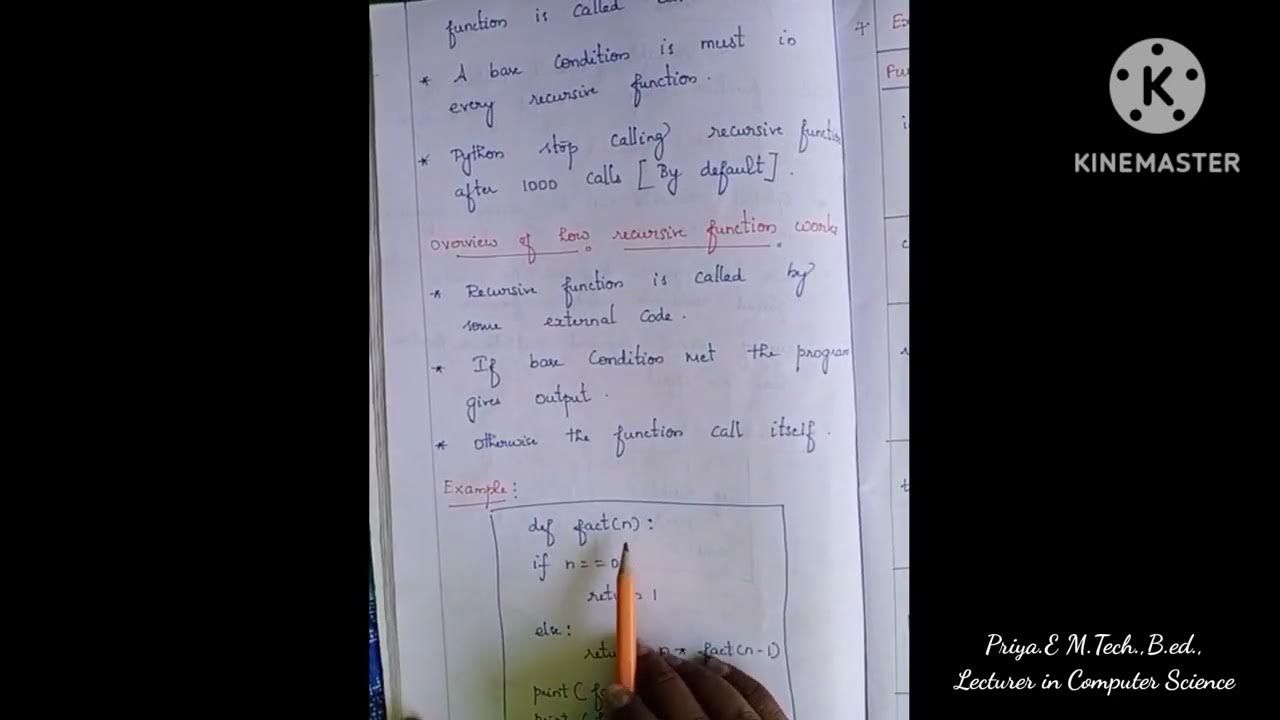 function is called
* A base condition is must in
every recursive function.
* Python stop calling recursive functio
after 1000 calls [By default].
Overview of how recursive function works
* Recursive function is called by
some external code.
* If base condition met the program
gives output.
* Otherwise the function call itself.
Example:
def fact(n):
if n==0
retu 1
else:
retu n * fact(n-1)
print(
K
KINEMASTER
Priya.E M.Tech.,B.ed.,
Lecturer in Computer Science